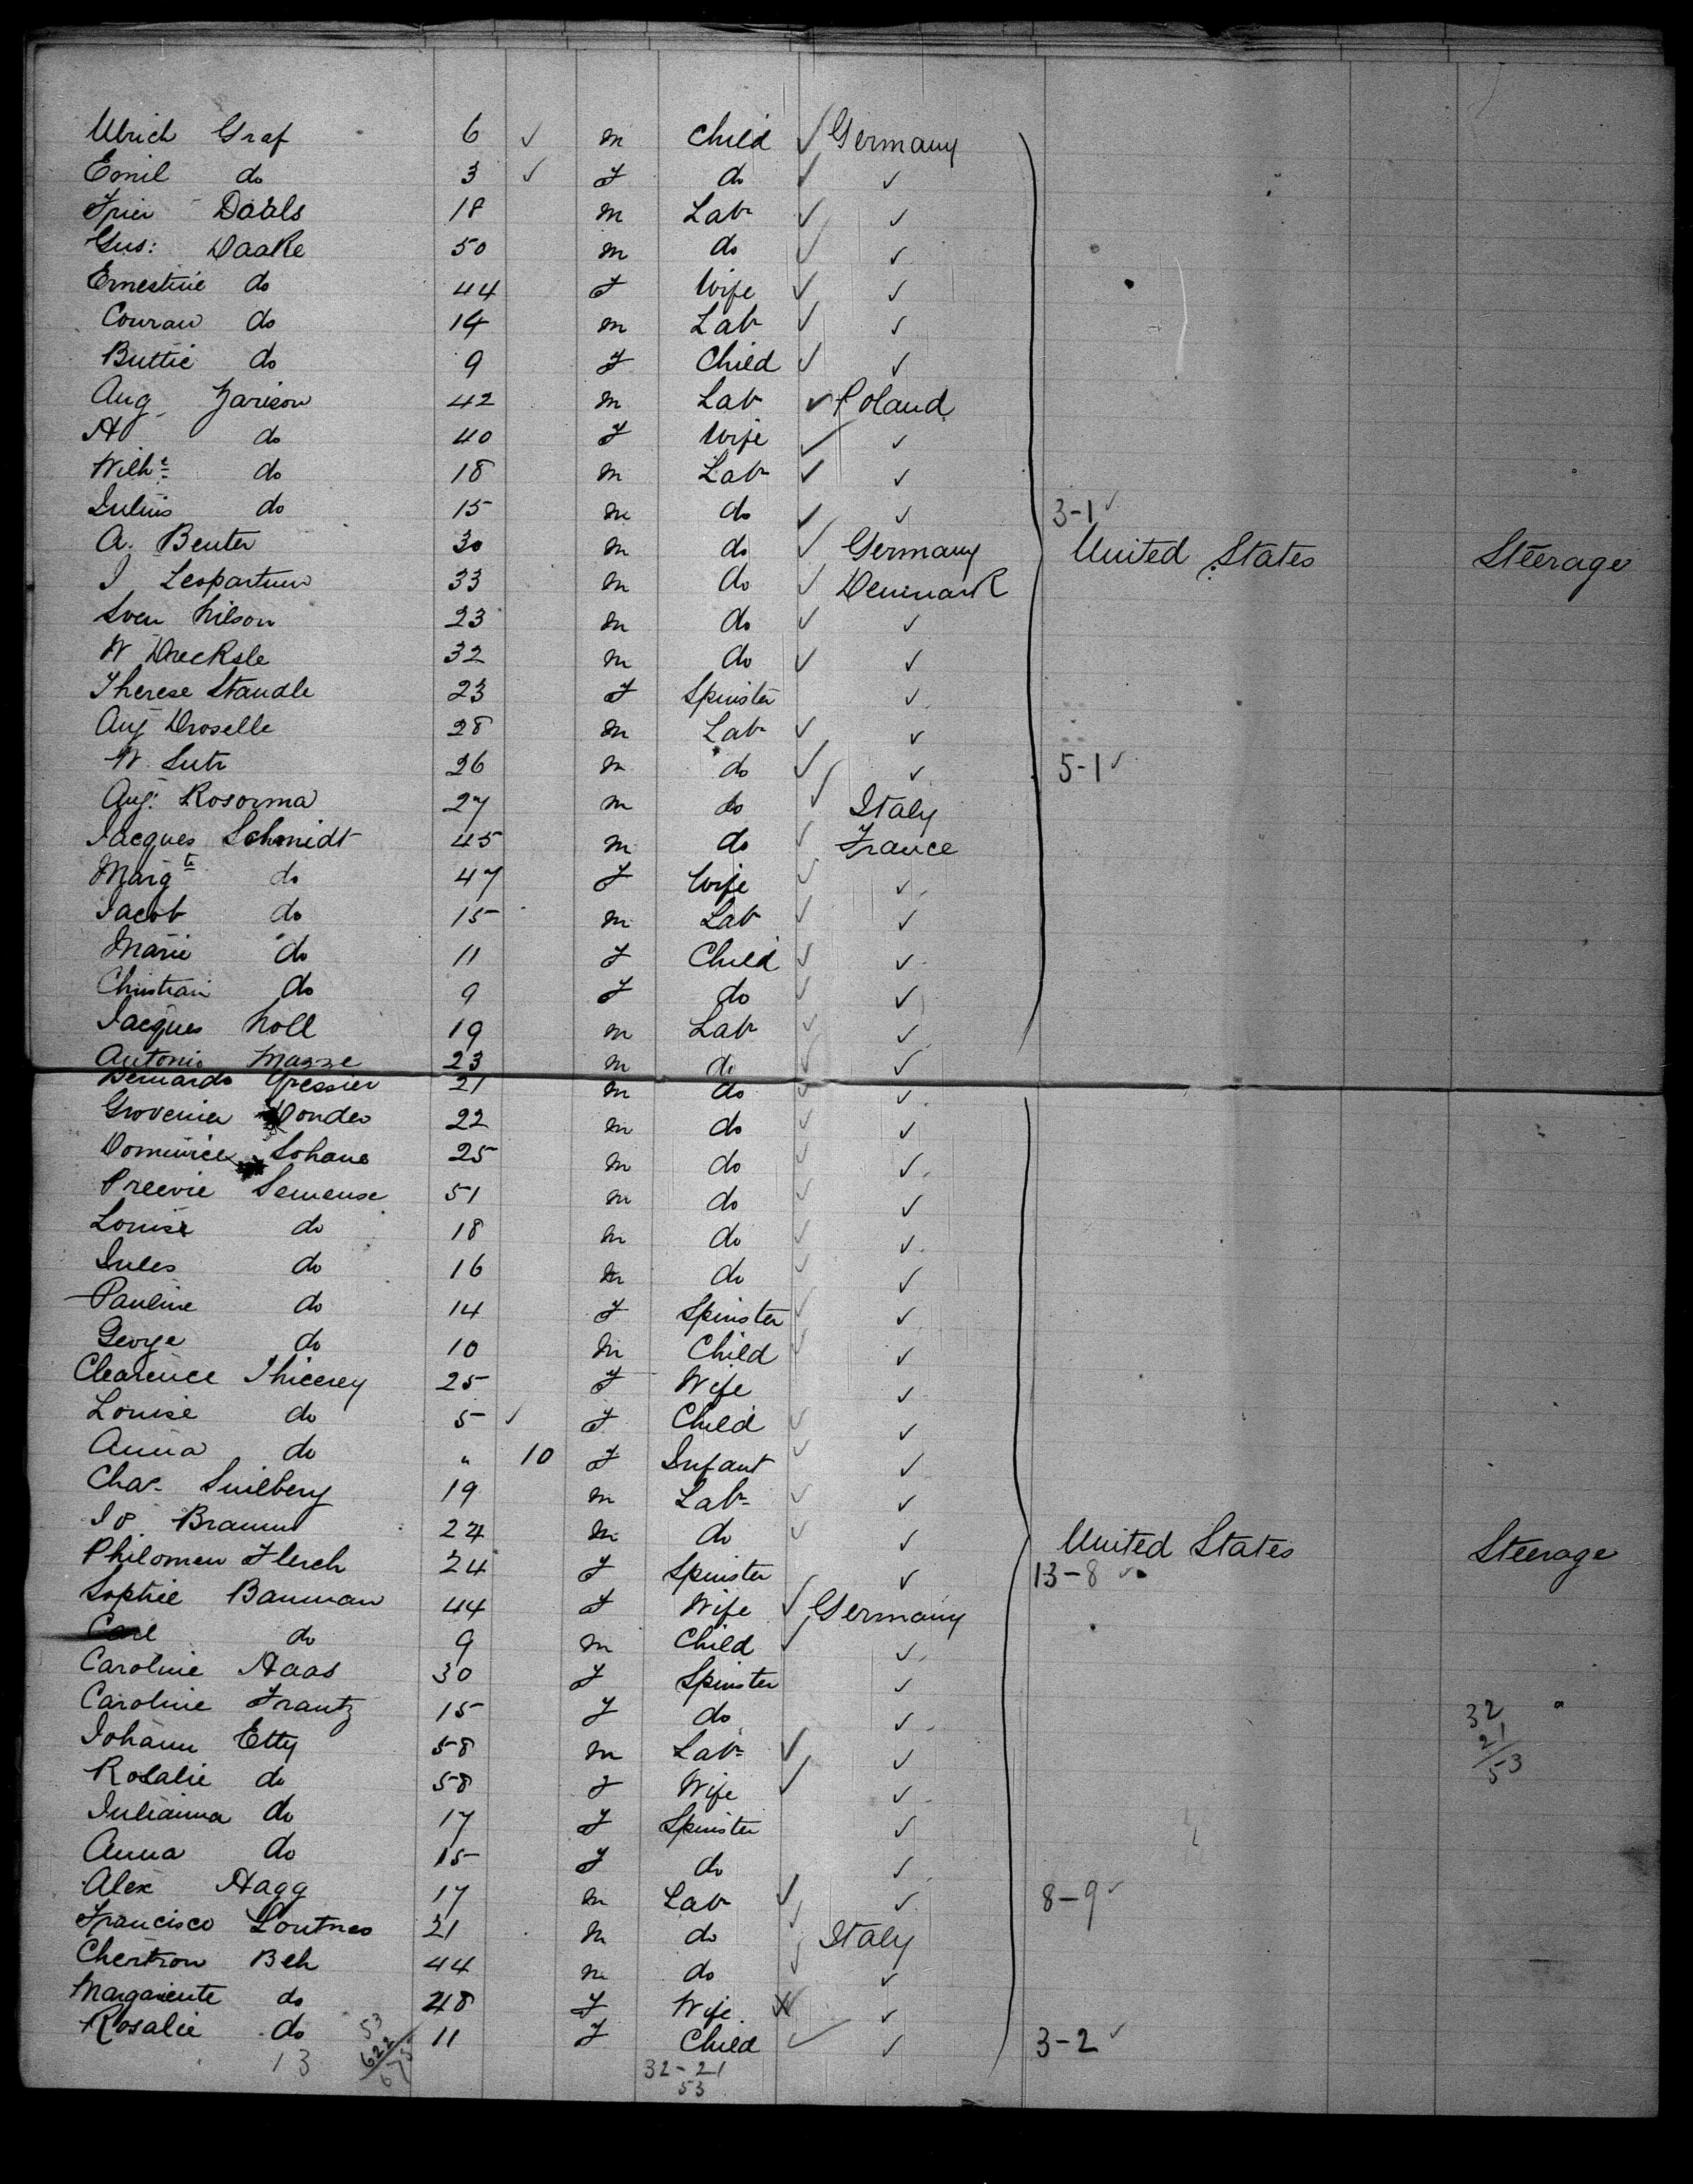 Ulrich Graf 6 ✓ m Child ✓ Germany
Emil do 3 ✓ f do ✓ ✓
Daals 18 m Lab ✓ ✓
Gus: Daake 50 m do ✓ ✓
Ernestine do 44 f Wife ✓ ✓
do 14 m Lab ✓ ✓
Buttie do 9 f Child ✓ ✓
Aug 42 m Lab ✓ Poland
A do 40 f Wife ✓ ✓
Wilhe do 18 m Lab ✓ ✓
Julius do 15 m do ✓ ✓ 3-1 ✓
A. Benter 30 m do ✓ Germany United States Steerage
J Leopartum 33 m do ✓ Denmark
Sven Nilson 23 m do ✓ ✓
W Drecksle 32 m do ✓ ✓
Therese Standle 23 f Spinster ✓
Aug Droselle 28 m Lab ✓ ✓
W. Sutr 26 m do ✓ ✓ 5-1 ✓
Aug: Rosorma 27 m do ✓ Italy
Jacques Schmidt 45 m do ✓ France
Margte do 47 f Wife ✓ ✓
Jacob do 15 m Lab ✓ ✓
Marie do 11 f Child ✓ ✓
Christian do 9 f do ✓ ✓
Jacques Noll 19 m Lab ✓ ✓
Antonio Mazze 23 m do ✓ ✓
Bernardo Gressier 21 m do ✓ ✓
Dondeo 22 m do ✓ ✓
Dominice Sohane 25 m do ✓ ✓
Preevie Semense 51 m do ✓ ✓
Louise do 18 m do ✓ ✓
Jules do 16 m do ✓ ✓
Pauline do 14 f Spinster ✓ ✓
George do 10 m Child ✓ ✓
Clearence Thicerey 25 f Wife ✓
Louise do 5 ✓ f Child ✓ ✓
Anna do " 10 f Infant ✓ ✓
Chas. 19 m Lab ✓ ✓
Jos. Braum 24 m do ✓ ✓ United States Steerage
Philomen Flerch 24 f Spinster ✓ 13-8 ✓
Sophie Bauman 44 f Wife ✓ Germany
Carl do 9 m Child ✓ ✓
Caroline Haas 30 f Spinster ✓
Caroline Frantz 15 f do ✓ 32
Johann Etty 58 m Lab ✓ ✓ 21
Rosalie do 58 f Wife ✓ ✓ 53
Julianna do 17 f Spinster ✓
Anna do 15 f do ✓
Alex Hagg 17 m Lab ✓ ✓ 8-9 ✓
Francisco Loutneo 21 m do ✓ Italy
Chertron Beh 44 m do ✓ ✓
Margarente do 48 f Wife ✓
Rosalie do 11 f Child ✓ ✓ 3-2 ✓
13 53 622 675 32-21
53